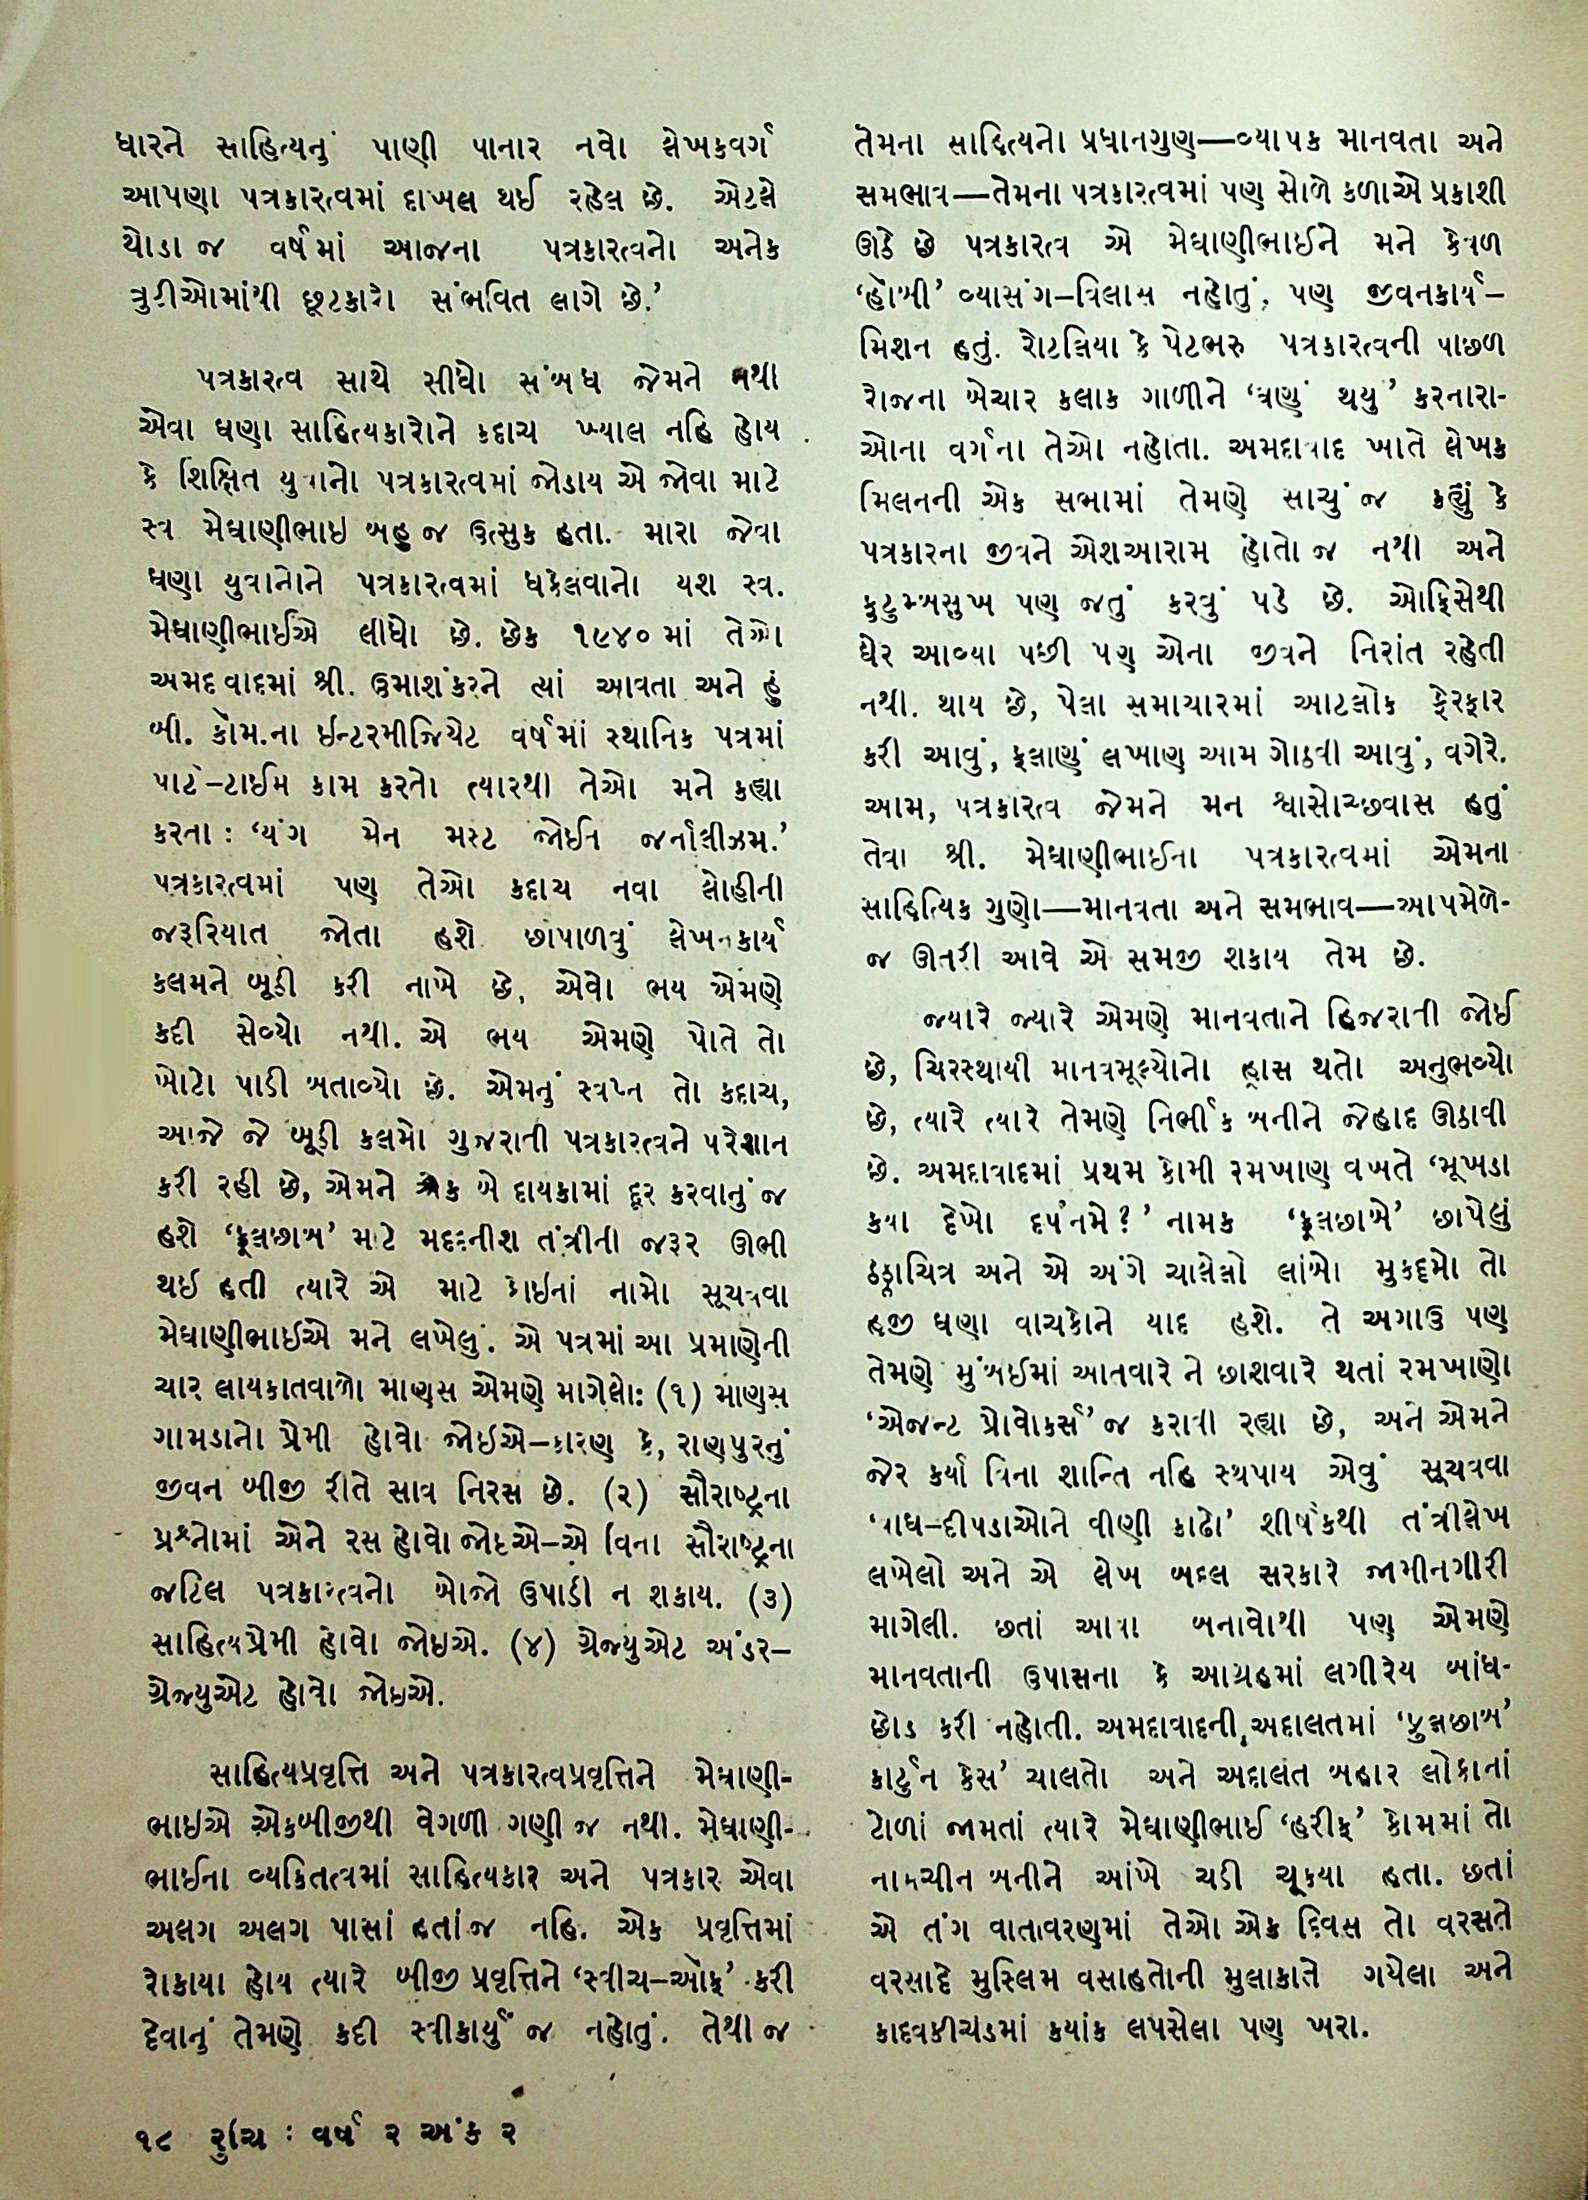 ધારને સાહિત્યનું પાણી પાનાર નવો લેખકવર્ગ
આપણા પત્રકારત્વમાં દાખલ થઈ રહેલ છે. એટલે
થોડા જ વર્ષમાં આજના પત્રકારત્વનો અનેક
ત્રુટીઓમાંથી છૂટકારો સંભવિત લાગે છે.’
પત્રકારત્વ સાથે સીધો સંબંધ જેમને નથી
એવા ઘણા સાહિત્યકારોને કદાચ ખ્યાલ નહિ હોય
કે શિક્ષિત યુવાનો પત્રકારત્વમાં જોડાય એ જોવા માટે
સ્વ મેઘાણીભાઇ બહુ જ ઉત્સુક હતા. મારા જેવા
ઘણા યુવાનોને પત્રકારત્વમાં ધકેલવાનો યશ સ્વ.
મેઘાણીભાઈએ લીધો છે. છેક ૧૯૪૦ માં તેઓ
અમદાવાદમાં શ્રી. ઉમાશંકરને ત્યાં આવતા અને હું
બી. કૉમ.ના ઈન્ટરમીજિયેટ વર્ષમાં સ્થાનિક પત્રમાં
પાર્ટ–ટાઈમ કામ કરતો ત્યારથી તેઓ મને કહ્યા
કરતા : ‘યંગ મેન મસ્ટ જોઈન જર્નાલીઝમ.’
પત્રકારત્વમાં પણ તેઓ કદાચ નવા લોહીની
જરૂરિયાત જોતા હશે છાપાળવું લેખનકાર્ય
કલમને બૂઠી કરી નાખે છે, એવો ભય એમણે
કદી સેવ્યો નથી. એ ભય એમણે પોતે તો
ખોટો પાડી બતાવ્યો છે. એમનું સ્વપ્ન તો કદાચ,
આજે જે બૂઠી કલમો ગુજરાતી પત્રકારત્વને પરેશાન
કરી રહી છે, એમને એક બે દાયકામાં દૂર કરવાનું જ
હશે ‘ફૂલછાબ’ માટે મદદનીશ તંત્રીની જરૂર ઊભી
થઈ હતી ત્યારે એ માટે કોઇનાં નામો સૂચવવા
મેઘાણીભાઈએ મને લખેલું. એ પત્રમાં આ પ્રમાણેની
ચાર લાયકાતવાળો માણસ એમણે માગેલો: (૧) માણસ
ગામડાનો પ્રેમી હોવો જોઇએ–કારણ કે, રાણપુરનું
જીવન બીજી રીતે સાવ નિરસ છે. (૨) સૌરાષ્ટ્રના
પ્રશ્નોમાં એને રસ હોવો જોઇએ–એ વિના સૌરાષ્ટ્રના
જટિલ પત્રકારત્વનો બોજો ઉપાડી ન શકાય. (૩)
સાહિત્યપ્રેમી હોવો જોઇએ. (૪) ગ્રેજ્યુએટ અંડર–
ગ્રેજ્યુએટ હોવો જોઇએ.
સાહિત્યપ્રવૃત્તિ અને પત્રકારત્વપ્રવૃત્તિને મેઘાણી-
ભાઇએ એકબીજીથી વેગળી ગણી જ નથી. મેઘાણી-
ભાઈના વ્યકિતત્વમાં સાહિત્યકાર અને પત્રકાર એવા
અલગ અલગ પાસાં હતાંજ નહિ. એક પ્રવૃત્તિમાં
રોકાયા હોય ત્યારે બીજી પ્રવૃત્તિને ‘સ્વીચ–ઑફ’ કરી
દેવાનું તેમણે કદી સ્વીકાર્યું જ નહોતું. તેથી જ
૧૮ રુચિ : વર્ષ ૨ અંક ૨
તેમના સાહિત્યનો પ્રધાનગુણ—વ્યાપક માનવતા અને
સમભાવ—તેમના પત્રકારત્વમાં પણ સોળે કળાએ પ્રકાશી
ઊઠે છે પત્રકારત્વ એ મેઘાણીભાઈને મને કેવળ
‘હૉબી’ વ્યાસંગ–વિલાસ નહોતું, પણ જીવનકાર્ય–
મિશન હતું. રોટલિયા કે પેટભરુ પત્રકારત્વની પાછળ
રોજના બેચાર કલાક ગાળીને ‘ત્રણું થયુ’ કરનારા-
ઓના વર્ગના તેઓ નહોતા. અમદાવાદ ખાતે લેખક
મિલનની એક સભામાં તેમણે સાચું જ કહ્યું કે
પત્રકારના જીવને એશઆરામ હોતો જ નથી અને
કુટુમ્બસુખ પણ જતું કરવું પડે છે. ઑફિસેથી
ઘેર આવ્યા પછી પણ એના જીવને નિરાંત રહેતી
નથી. થાય છે, પેલા સમાચારમાં આટલોક ફેરફાર
કરી આવું, ફલાણું લખાણ આમ ગોઠવી આવું, વગેરે.
આમ, પત્રકારત્વ જેમને મન શ્વાસોચ્છવાસ હતું
તેવા શ્રી. મેઘાણીભાઈના પત્રકારત્વમાં એમના
સાહિત્યિક ગુણો—માનવતા અને સમભાવ—આપમેળે-
જ ઊતરી આવે એ સમજી શકાય તેમ છે.
જ્યારે જ્યારે એમણે માનવતાને હિજરાતી જોઈ
છે, ચિરસ્થાયી માનવમૂલ્યોનો હ્રાસ થતો અનુભવ્યો
છે, ત્યારે ત્યારે તેમણે નિર્ભીક બનીને જેહાદ ઊઠાવી
છે. અમદાવાદમાં પ્રથમ કોમી રમખાણ વખતે ‘મૂખડા
કયા દેખો દર્પનમે ? ’ નામક ‘ફૂલછાબે’ છાપેલું
ઠઠ્ઠાચિત્ર અને એ અંગે ચાલેલો લાંબો મુકદ્દમો તો
હજી ઘણા વાચકોને યાદ હશે. તે અગાઉ પણ
તેમણે મુંબઈમાં આતવારે ને છાશવારે થતાં રમખાણો
‘એજન્ટ પ્રોવોકર્સ’ જ કરાવી રહ્યા છે, અને એમને
જેર કર્યા વિના શાન્તિ નહિ સ્થપાય એવું સૂચવવા
‘વાઘ–દીપડાઓને વીણી કાઢો’ શીર્ષકથી તંત્રીલેખ
લખેલો અને એ લેખ બદલ સરકારે જામીનગીરી
માગેલી. છતાં આવા બનાવોથી પણ એમણે
માનવતાની ઉપાસના કે આગ્રહમાં લગીરેય બાંધ-
છોડ કરી નહોતી. અમદાવાદની અદાલતમાં ‘ફુલછાબ’
કાર્ટુન કેસ’ ચાલતો અને અદાલત બહાર લોકોનાં
ટોળાં જામતાં ત્યારે મેઘાણીભાઈ ‘હરીફ’ કોમમાં તો
નામચીન બનીને આંખે ચડી ચૂકયા હતા. છતાં
એ તંગ વાતાવરણમાં તેઓ એક દિવસ તો વરસતે
વરસાદે મુસ્લિમ વસાહતોની મુલાકાતે ગયેલા અને
કાદવકીચડમાં કયાંક લપસેલા પણ ખરા.